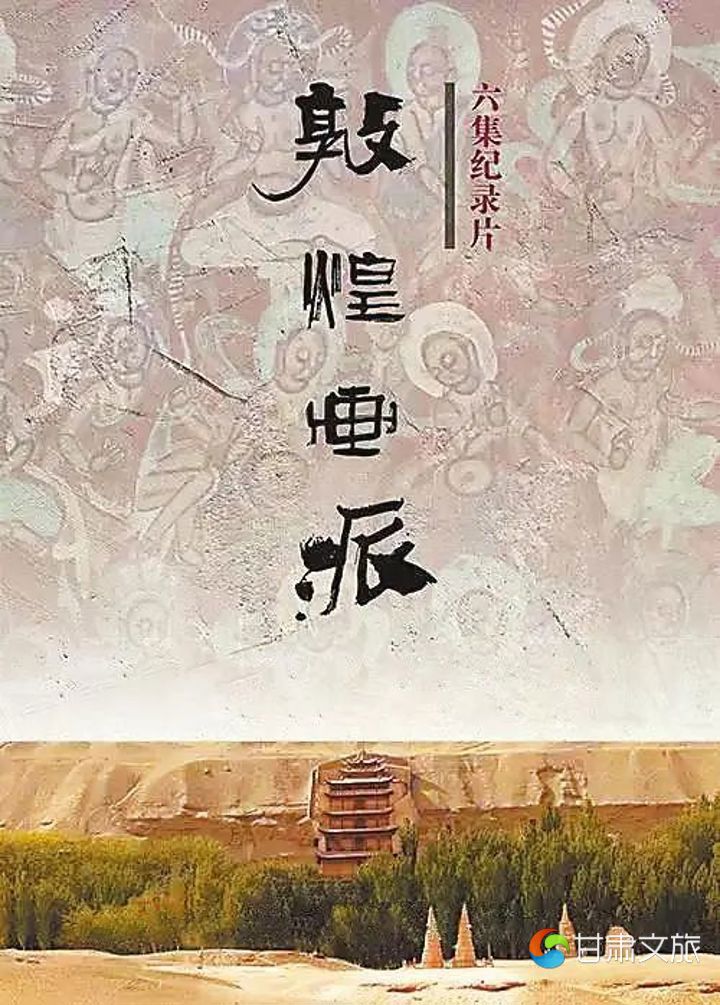 六集纪录片
敦煌画派
甘肃文旅